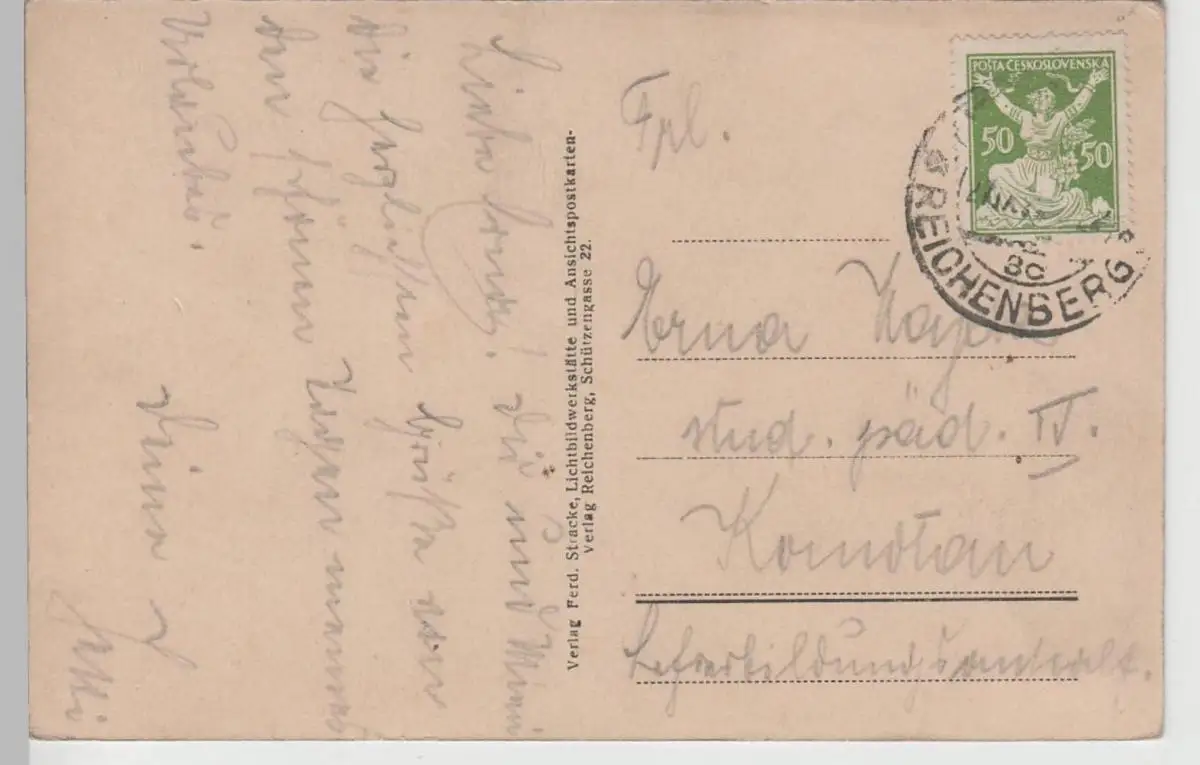 Liebe Erna! Dir und Mimi
die herzlichsten Grüße von
den schönen Tagen meines
Urlaubes.
Deine
Verlag Ferd. Stracke, Lichtbildwerkstätte und Ansichtspostkarten-
Verlag Reichenberg, Schützengasse 22.
POŠTA ČESKOSLOVENSKÁ
50 50
REICHENBERG
Frl.
Erna
stud. päd. IV.
Komotau
Lehrerbildungsanstalt.